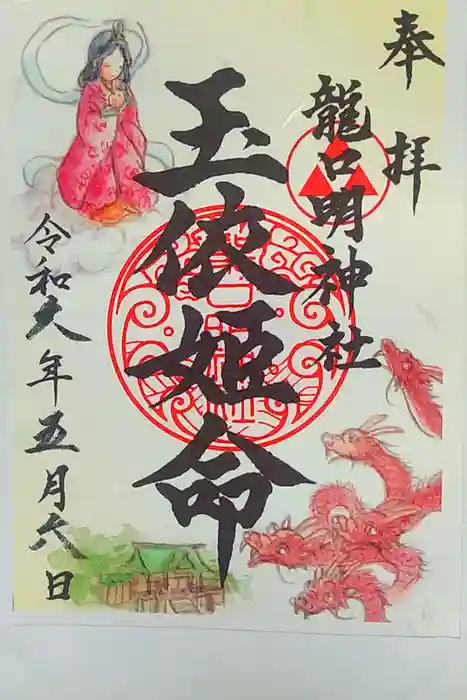 奉拝
龍口明神社
玉依姫命
令和六年五月六日